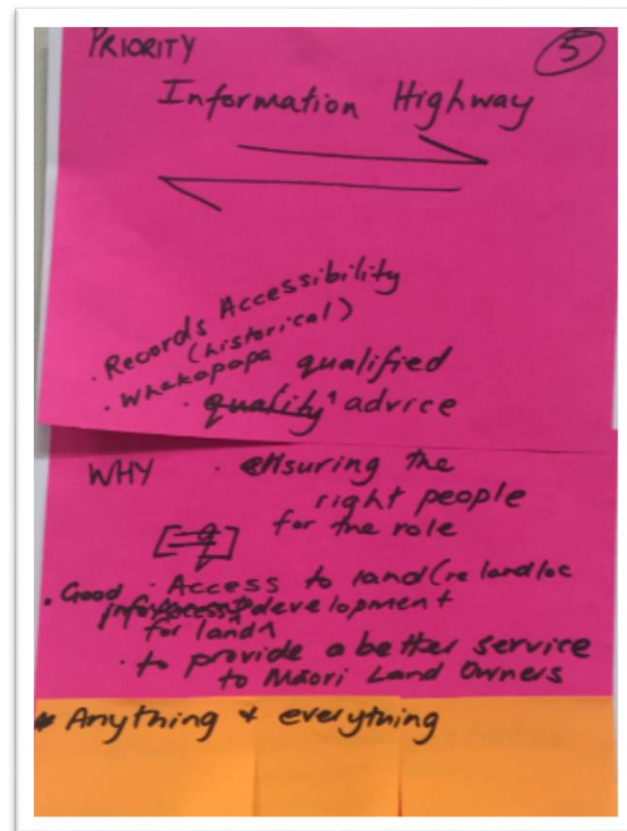 PRIORITY
5
Information Highway
. Records Accessibility
(historical)
. Whakapapa
qualified
. quality advice
WHY . ensuring the
right people
for the role
. Access to land (re landloc
. Good info development
for land
. to provide a better service
to Māori Land Owners
* Anything & everything